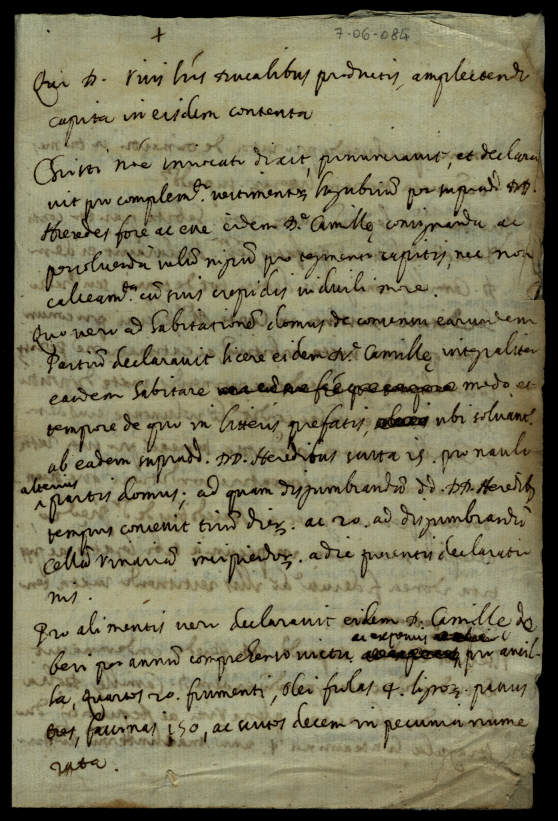 +
7-06-084
Qui D. visis litris ducalibus productis, amplectendo
capita in eisdem contenta
Christi nõe invocato dixit, pronunciavit, et declara
vit pro complem.to vestimentor. lugubrium per suprad. DD.
Heredes fore ac esse eidem D.e Camille consignanda ac
persolvenda velum nigrum pro tegmento capitis, nec non
calceam.ta cum suis crepidis in duili more.
Quo vero ad habitationem domus de conventu earundem
Partium declaravit licere eidem D.e Camille integraliter
eandem habitare modo, et
tempore de quo in litteris prefatis, ubi solvant.
ab eadem supradd. DD. Heredibus scuta 15. pro
alterius
partis domus; ad quam disgumbrandum dd. DD. Heredib.
tempus convenit trium dier. ac 20. ad disgumbrandum
cellam vinariam incipiendor. a die presentis declaratio
nis.
Pro alimentis vero declaravit eidem D. Camille de
beri per annum comprehenso victu ac expensis pro ancil-
la, quartos 20. frumenti, olei 4. panus
tres, fassinas 150, ac scutos decem in pecunia nume
rata.